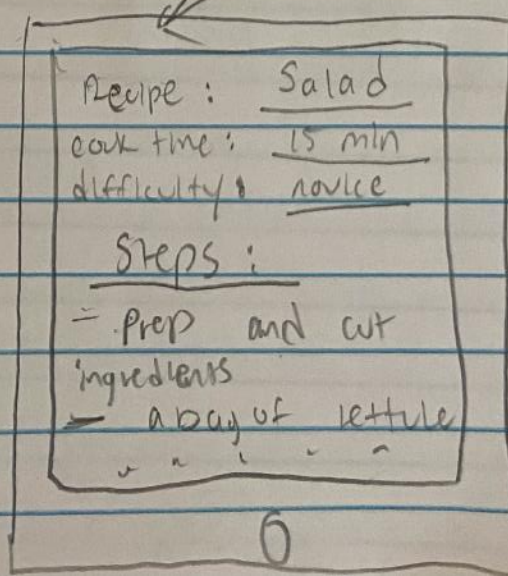 Recipe: Salad
cook time: 15 min
difficulty: novice
Steps:
- Prep and cut
ingredients
- a bag of lettuce